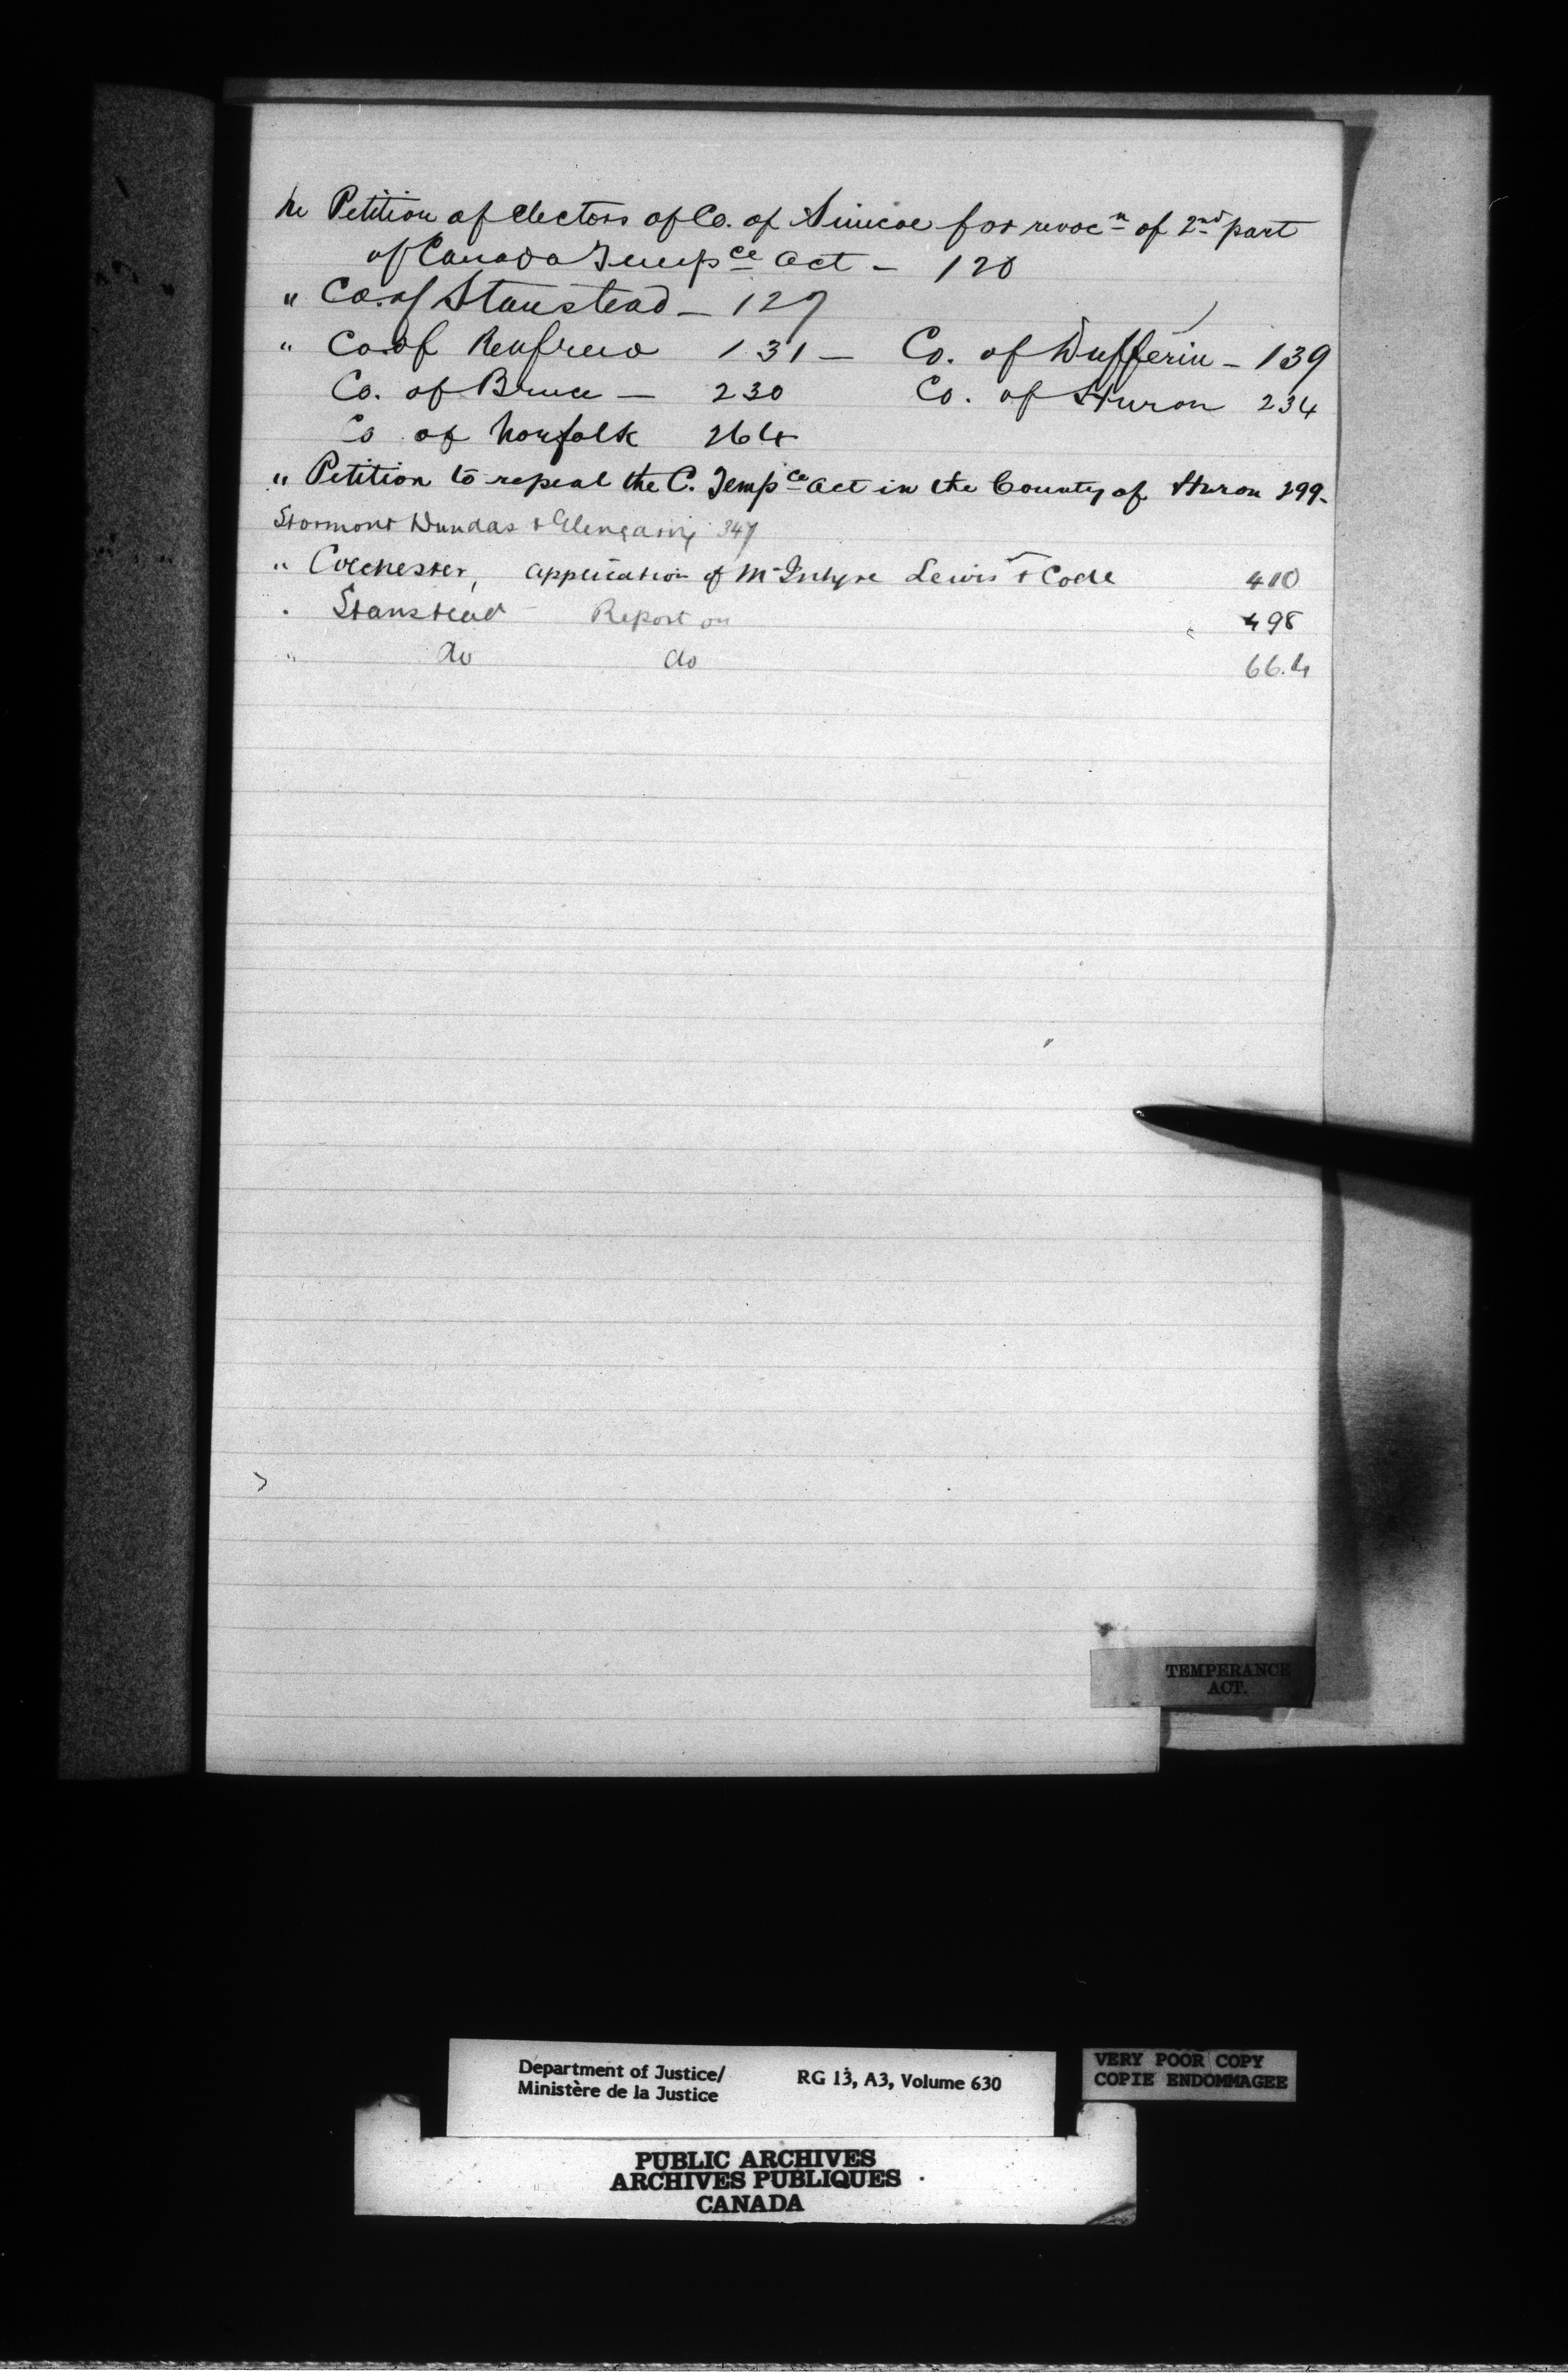 Re Petition of electors of Co. of Simcoe for revocn of 2nd part
of Canada Tempce Act - 120
" Co. of Stanstead - 127
" Co. of Renfrew 131 - Co. of Dufferin - 139
Co. of Bruce - 230 Co. of Huron 234
Co of Norfolk 264
" Petition to repeal the C. Tempce Act in the County of Huron 299-
Stormont Dundas & Glengarry 347
" Colchester, application of McIntyre Lewis & Code 410
" Stanstead - Report on 498
" do do 664
TEMPERANCE
ACT.
Department of Justice/
Ministère de la Justice
RG 13, A3, Volume 630
VERY POOR COPY
COPIE ENDOMMAGEE
PUBLIC ARCHIVES
ARCHIVES PUBLIQUES
CANADA